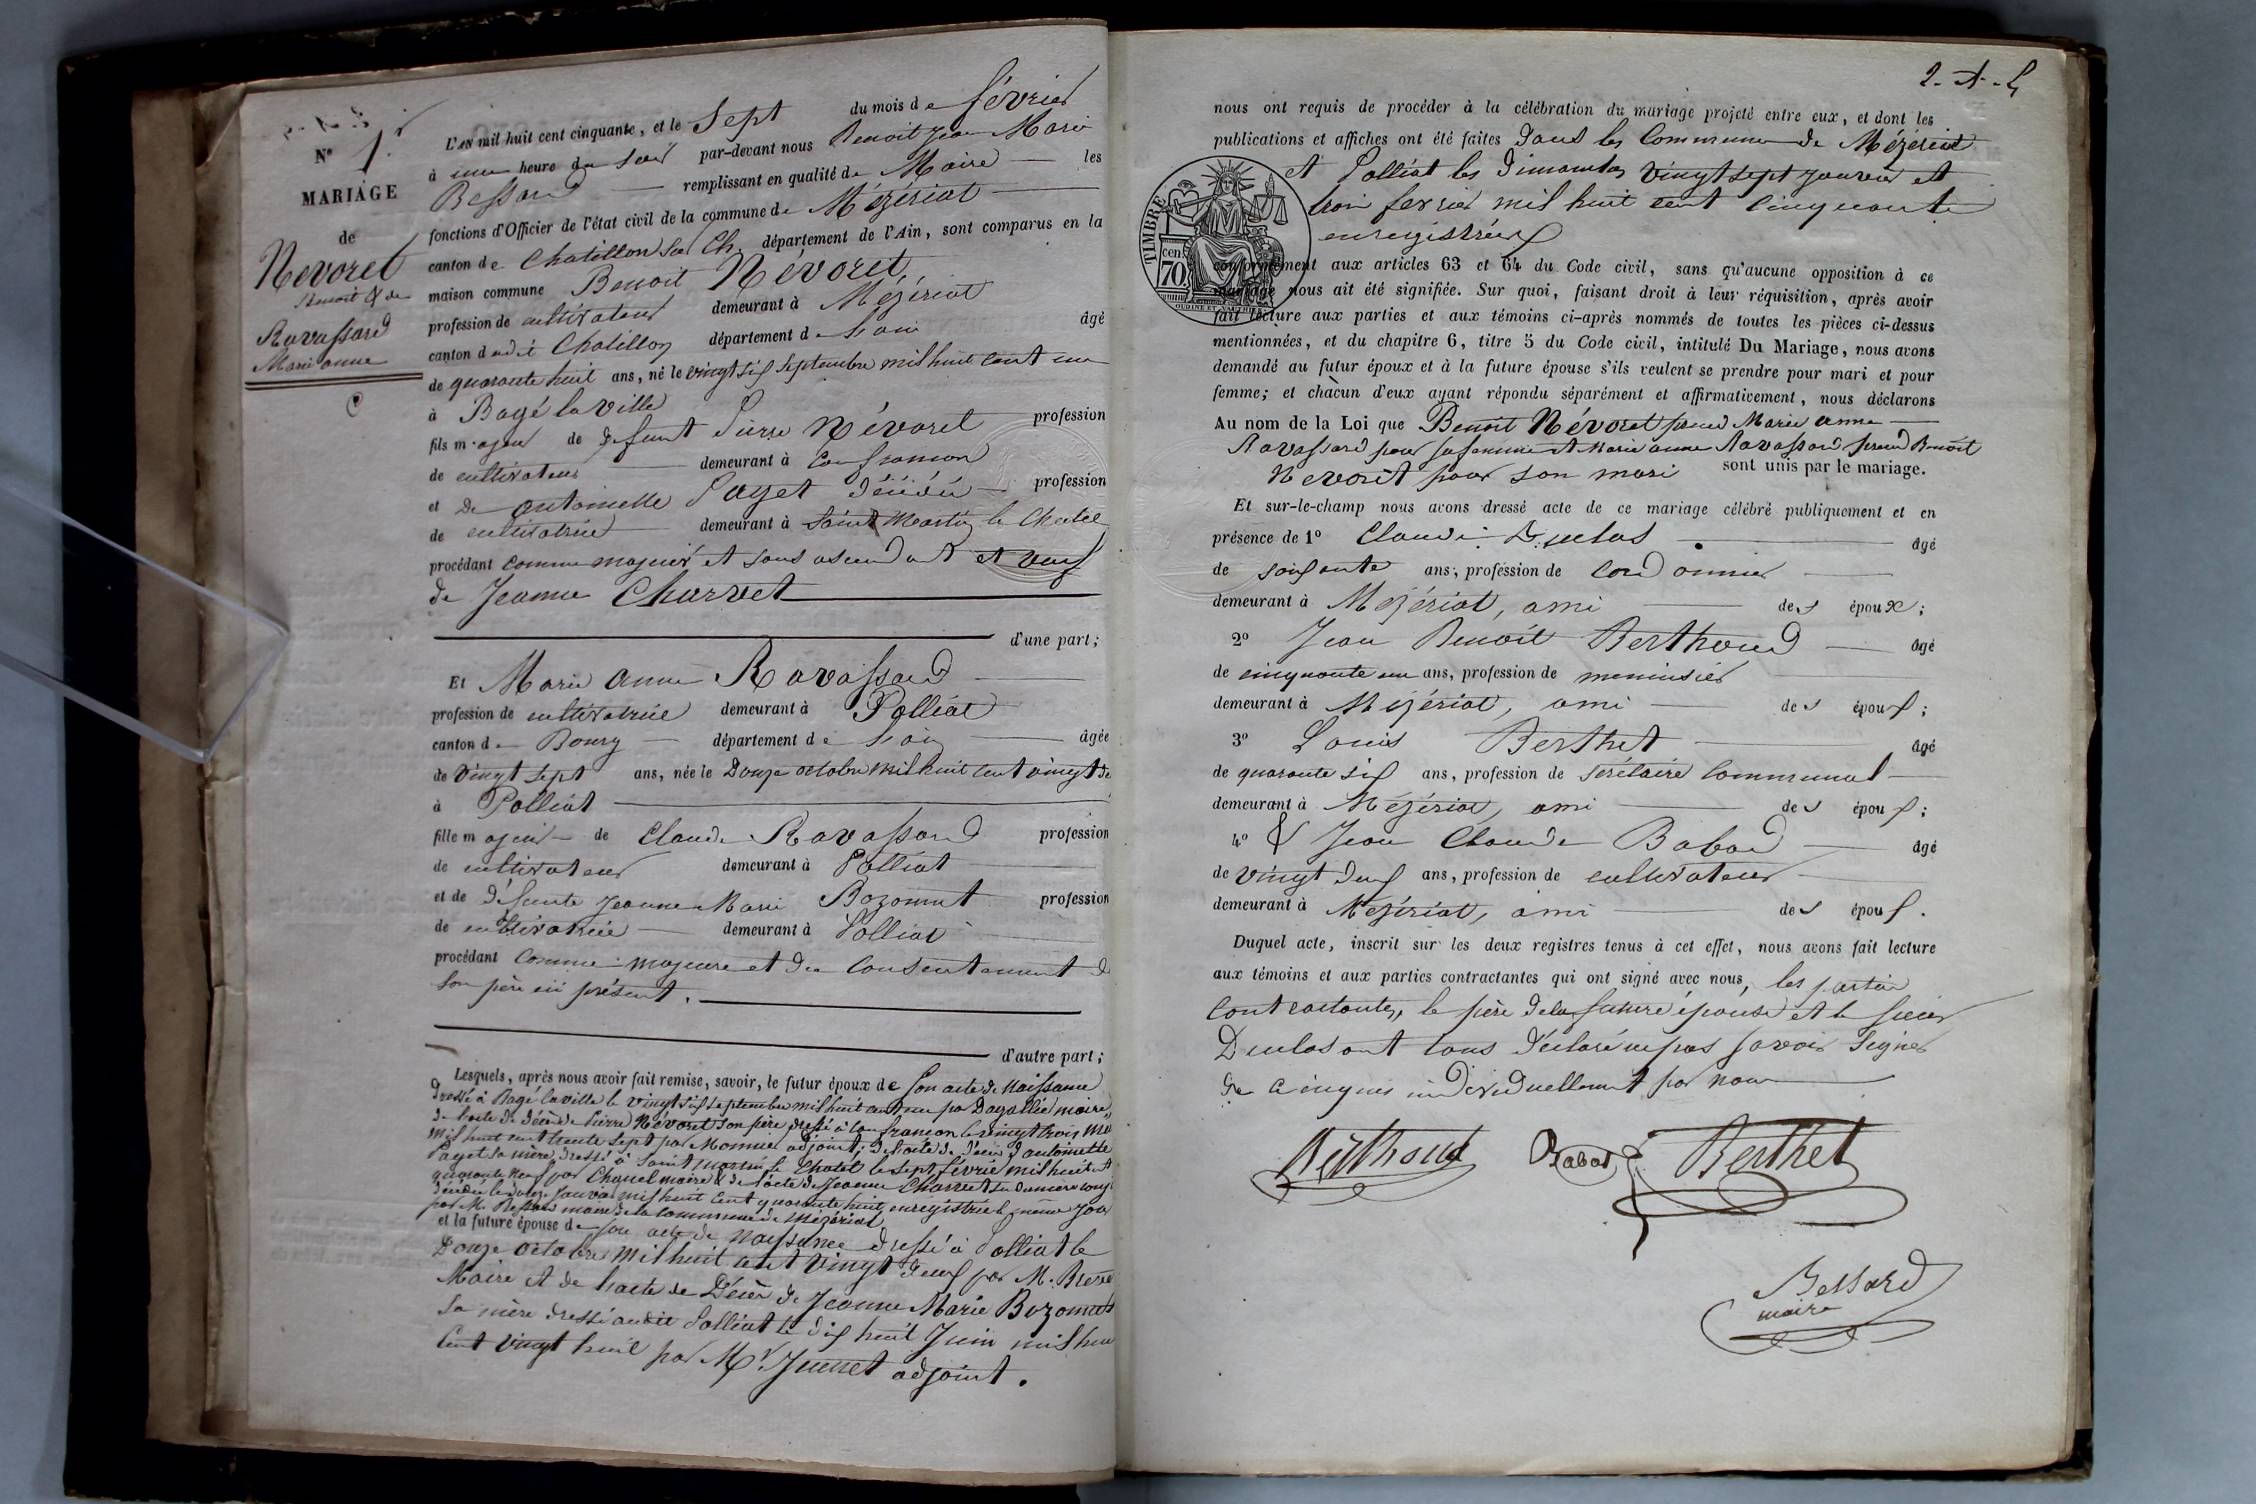 N° 1.
MARIAGE
de
Nevoret
Benoit & de
Ravassard
Marie anne
L'AN mil huit cent cinquante, et le Sept du mois de février
à une heure du soir par-devant nous Benoit Jean Marie
Bessard remplissant en qualité de Maire les
fonctions d'Officier de l'état civil de la commune de Mézériat
canton de Chatillon sur Ch. département de l'Ain, sont comparus en la
maison commune Benoit Névoret,
profession de cultivateur demeurant à Mézériat
canton dudit Chatillon département de l'ain âgé
de quarante huit ans, né le vingt six Septembre mil huit cent un
à Bagé la ville
fils majeur de défunt Pierre Névoret profession
de cultivateur demeurant à Confrançon
et de antoinette Payet décédée profession
de cultivatrice demeurant à Saint Martin le Chatel
procédant comme majeur et sans ascendant et veuf
de Jeanne Charvet
d'une part;
Et Marie anne Ravassard
profession de cultivatrice demeurant à Polliat
canton de Bourg département de l'ain âgée
de vingt sept ans, née le Douze octobre mil huit cent vingt de
à Polliat
fille majeure de Claude Ravassard profession
de cultivateur demeurant à Polliat
et de défunte Jeanne Marie Bozonnet profession
de cultivatrice demeurant à Polliat
procédant comme majeure et du consentement d
son père ici présent.
d'autre part;
Lesquels, après nous avoir fait remise, savoir, le futur époux de son acte de Naissance
dressé à Bagé la ville le vingt six Septembre mil huit cent un par maire,
de l'acte de décès de Pierre Névoret son père dressé à Confrançon le vingt trois
mil huit cent trente sept par Monnier adjoint; de l'acte de décès d'antoinette
Payet sa mère dressé à Saint Martin le Chatel le sept février mil huit
quarante neuf par Chanel maire & de l'acte de Jeanne Charvet sa dernière
décédée le douze janvier mil huit cent quarante huit, enregistré le même jour
par M. Bessard maire de la commune de Mézériat
et la future épouse de son acte de naissance dressé à Polliat le
Douze octobre mil huit cent vingt deux par M.
Maire et de l'acte de Décès de Jeanne Marie Bozonnet
sa mère dressé audit Polliat le dix huit Juin mil hui
cent vingt huit par Mr Juenet adjoint.
nous ont requis de procéder à la célébration du mariage projeté entre eux, et dont les
publications et affiches ont été faites dans les Communes de Mézériat
et Polliat les dimanches vingt sept janvier et
trois fevrier mil huit cent cinquante
enregistrées
TIMBRE
cen.
70
conformément aux articles 63 et 64 du Code civil, sans qu'aucune opposition à ce
mariage nous ait été signifiée. Sur quoi, faisant droit à leur réquisition, après avoir
fait lecture aux parties et aux témoins ci-après nommés de toutes les pièces ci-dessus
mentionnées, et du chapitre 6, titre 5 du Code civil, intitulé Du Mariage, nous avons
demandé au futur époux et à la future épouse s'ils veulent se prendre pour mari et pour
femme; et chacun d'eux ayant répondu séparément et affirmativement, nous déclarons
Au nom de la Loi que Benoit Névoret prend Marie anne
Ravassard pour sa femme et Marie anne Ravassard prend Benoit
Nevoret pour son mari sont unis par le mariage.
Et sur-le-champ nous avons dressé acte de ce mariage célébré publiquement et en
présence de 1° Claude Duclos âgé
de soixante ans, profession de cordonnier
demeurant à Mézériat, ami des époux;
2° Jean Benoit Berthoud âgé
de cinquante un ans, profession de menuisier
demeurant à Mézériat, ami des époux;
3° Louis Berthet âgé
de quarante six ans, profession de secrétaire communal
demeurant à Mézériat, ami des époux;
4° & Jean Claude Babad âgé
de vingt deux ans, profession de cultivateur
demeurant à Mézériat, ami des époux.
Duquel acte, inscrit sur les deux registres tenus à cet effet, nous avons fait lecture
aux témoins et aux parties contractantes qui ont signé avec nous, les parties
contractantes, le père de la future épouse et le sieur
Duclos ont tous déclaré ne pas savoir signer
de ce enquis individuellement par nous
Berthoud Babad Berthet
Bessard
maire